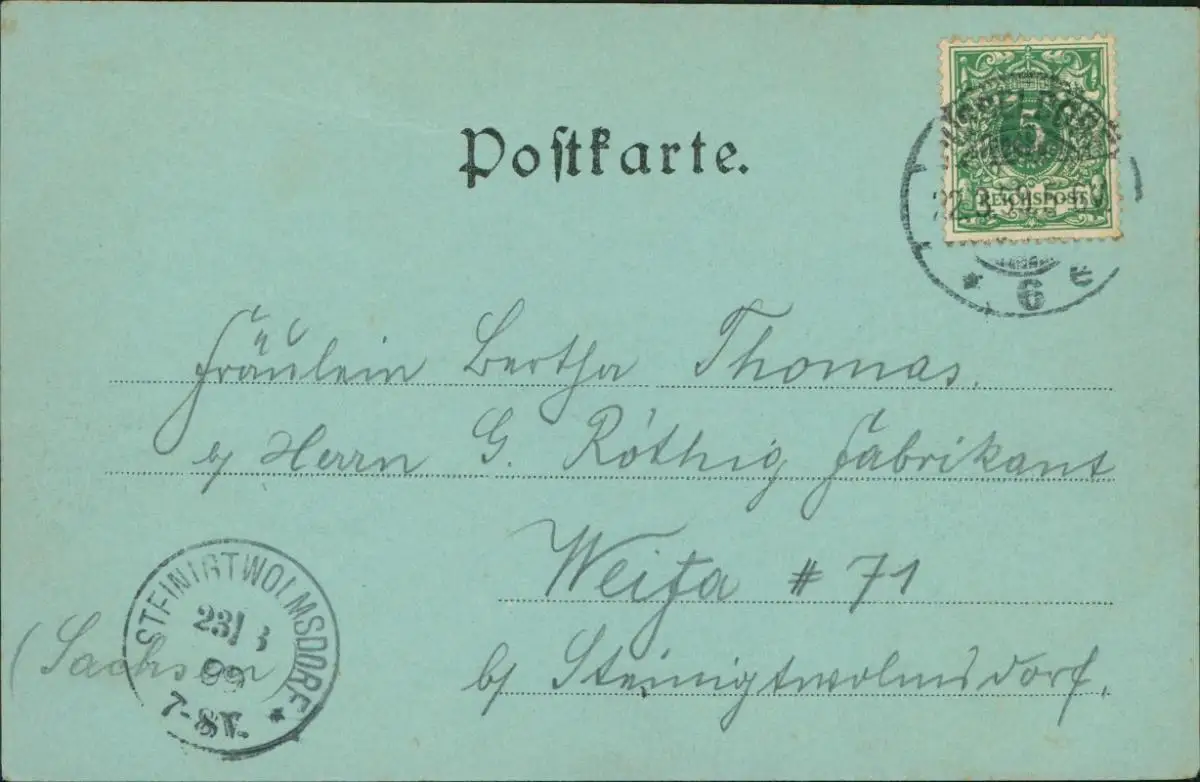 Postkarte.
5
REICHSPOST
22.3.
6
Fräulein Bertha Thomas.
b/ Herrn G. Röthig Fabrikant
Weifa # 71
b/ Steinigtwolmsdorf.
(Sachsen)
STEINIGTWOLMSDORF
23/3
99
7-8V.